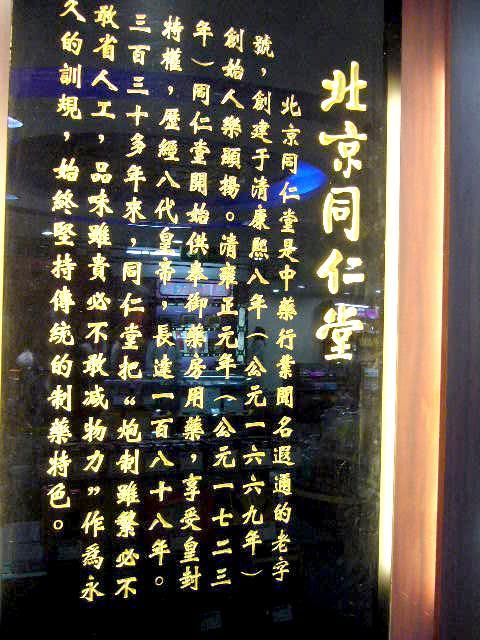 北京同仁堂
北京同仁堂是中藥行業聞名遐邇的老字
號，創建于清康熙八年（公元一六六九年）
創始人樂顯揚。清雍正元年（公元一七二三
年）同仁堂開始供奉御藥房用藥，享受皇封
特權，歷經八代皇帝，長達一百八十八年。
三百三十多年來，同仁堂把“炮制雖繁必不
敢省人工，品味雖貴必不敢减物力”作爲永
久的訓規，始終堅持傳統的制藥特色。